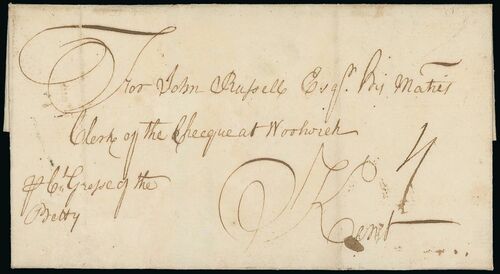 For John Russell Esqr. His Maties
Clerk of the Checque at Woolwich
Kent
4
p Cn Grese of the
Betty